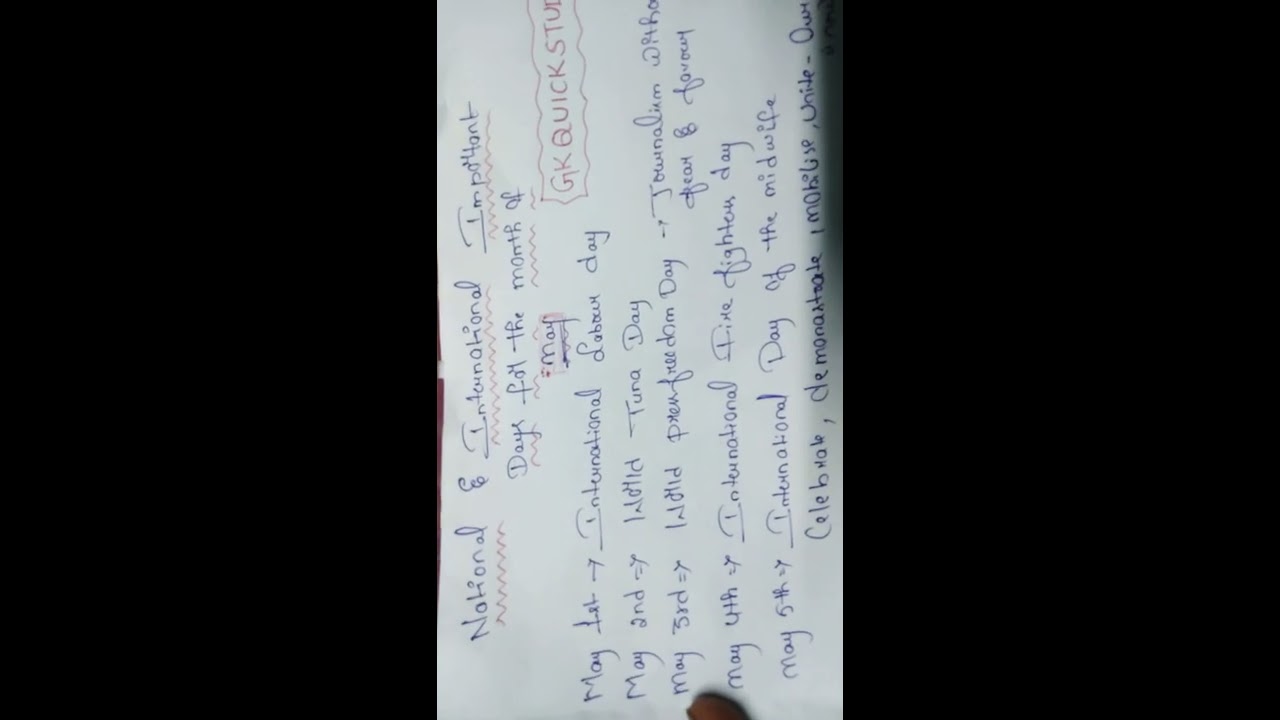 National & International Important
Days for the month of
"May
GKQUICKSTUD
May 1st → International Labour day
May 2nd => World Tuna Day
May 3rd => World pressfreedom Day → Journalism witho
fear & favour
May 4th => International Fire fighters day
May 5th => International Day of the midwife
Celebrate, demonstrate, mobilise, unite - Our